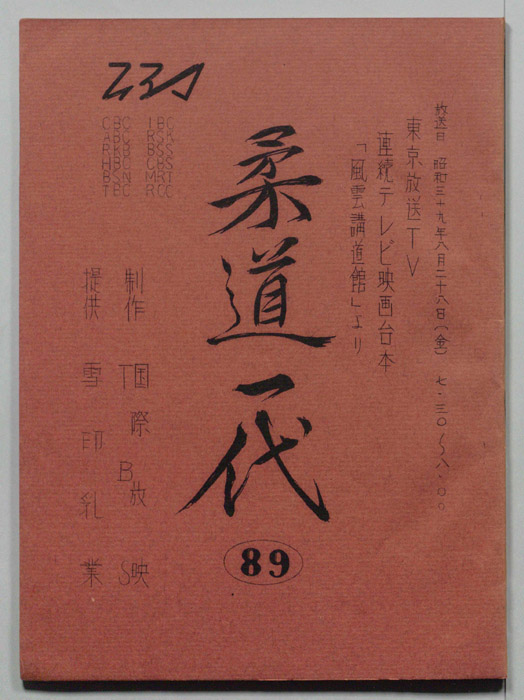 放送日 昭和三十九年八月二十八日(金) 七・三〇〜八・〇〇
東京放送TV
連続テレビ映画台本
「風雲講道館」より
柔道一代
89
制作 国際放映
TBS
提供 雪印乳業